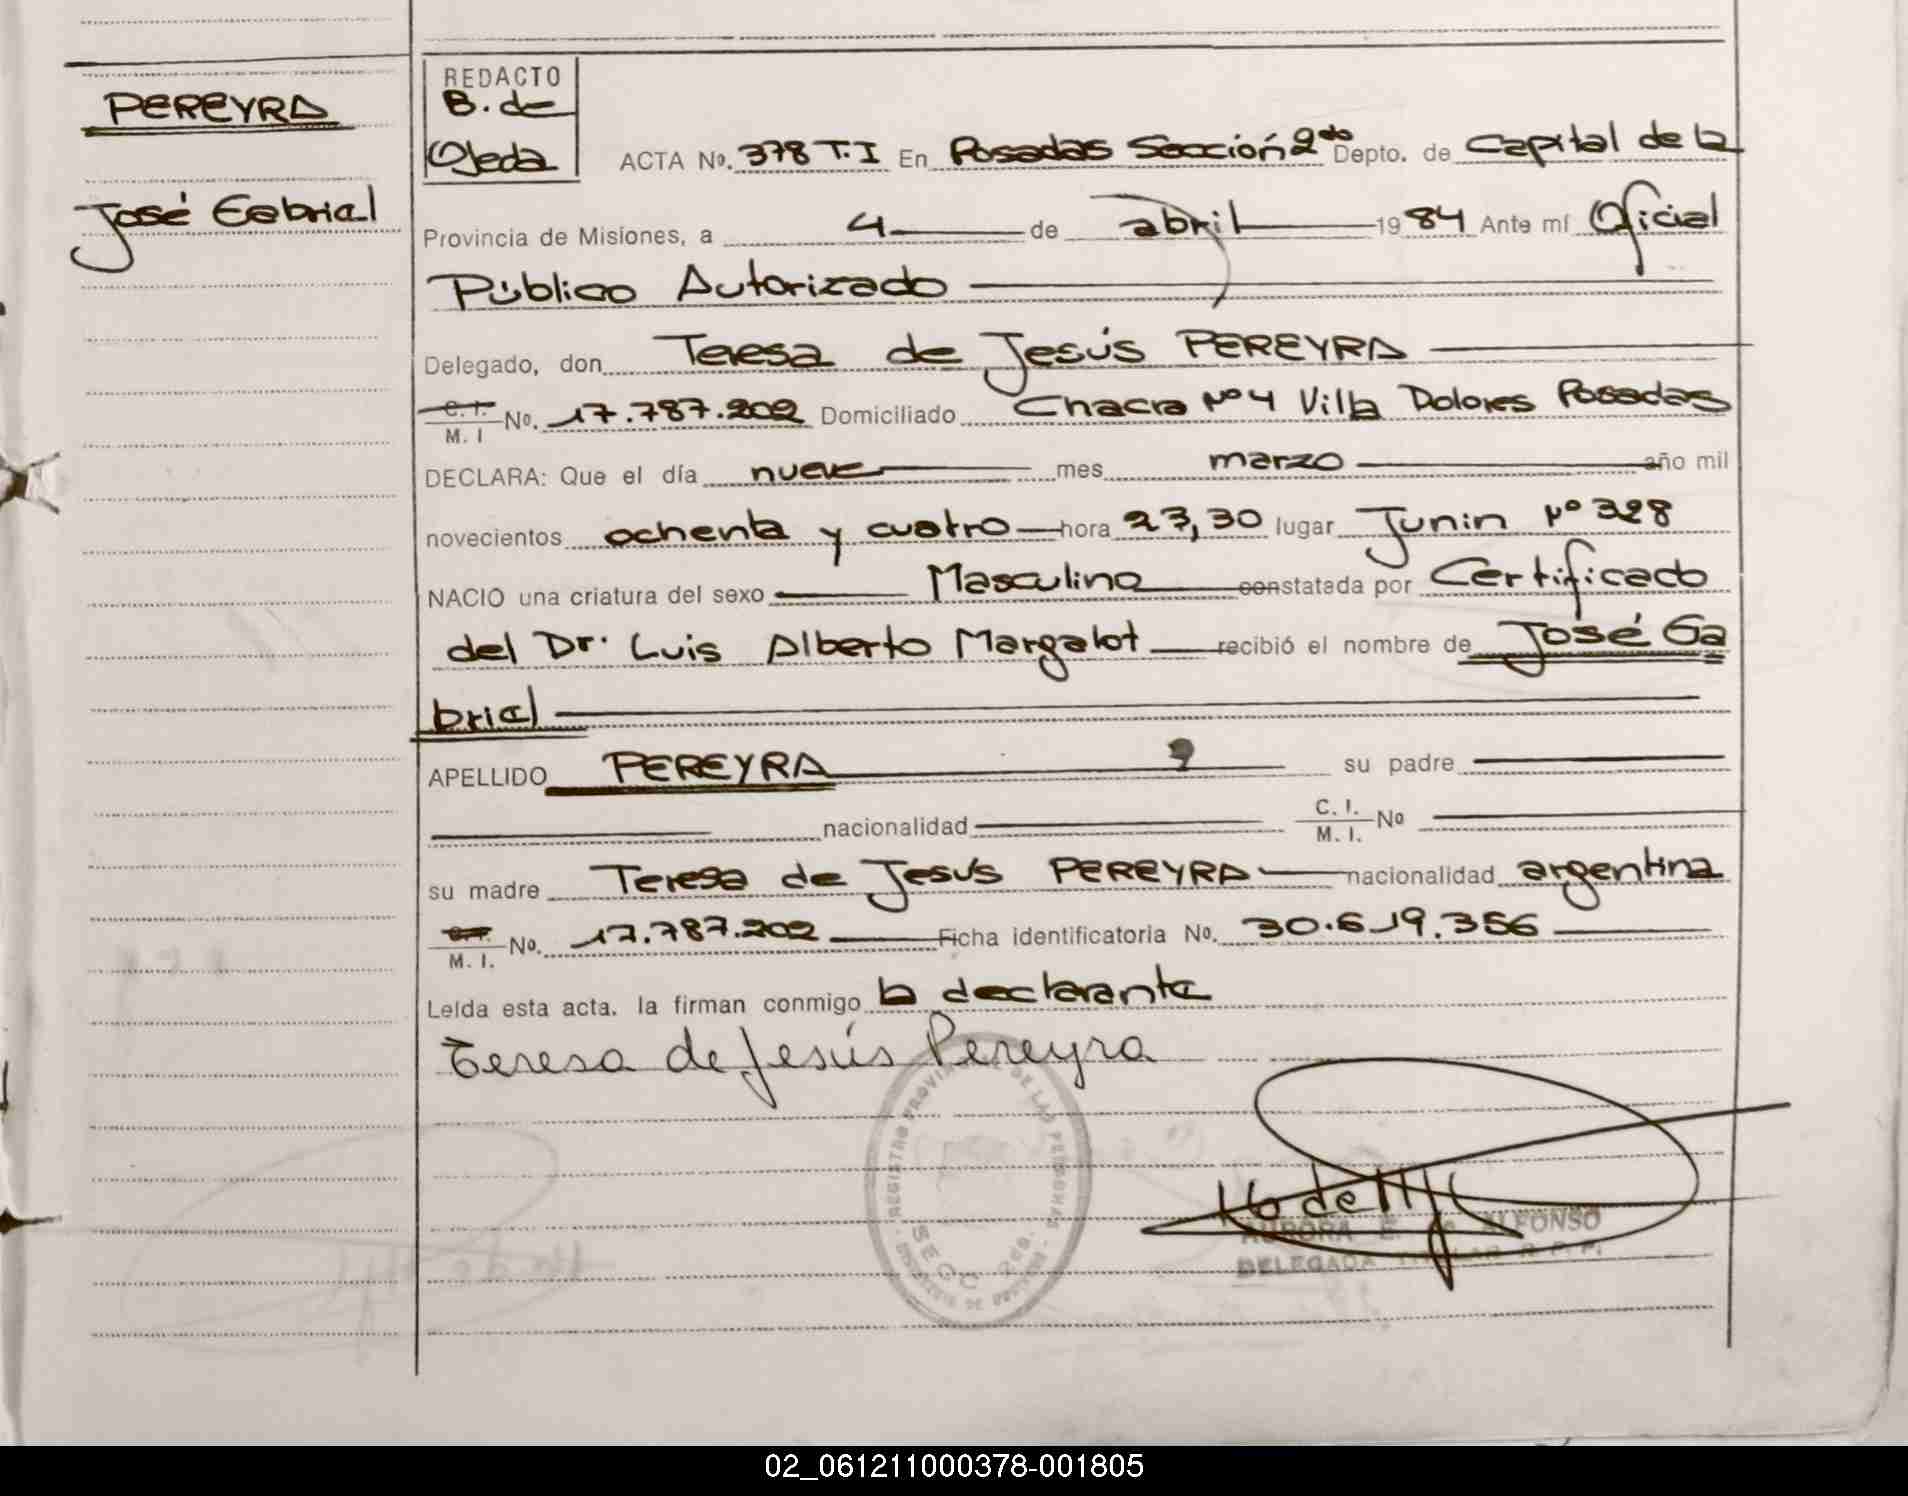 PEREYRA
José Gabriel
REDACTO
B. de
Ojeda
ACTA No. 378 T.I En Posadas Sección 2do Depto. de Capital de la
Provincia de Misiones, a 4 de abril 1984 Ante mí Oficial
Público Autorizado
Delegado, don Teresa de Jesús PEREYRA
C. I. M. I No. 17.787.202 Domiciliado Chacra Nº 4 Villa Dolores Posadas
DECLARA: Que el día nueve mes marzo año mil
novecientos ochenta y cuatro hora 23,30 lugar Junin Nº 328
NACIO una criatura del sexo Masculino constatada por Certificado
del Dr. Luis Alberto Margalot recibió el nombre de José Ga
briel
APELLIDO PEREYRA su padre
nacionalidad C. I. M. I. No
su madre Teresa de Jesús PEREYRA nacionalidad argentina
C.I. M. I. No. 17.787.202 Ficha identificatoria No. 30.619.356
Leída esta acta. la firman conmigo la declarante
Teresa de Jesús Pereyra
REGISTRO PROVINCIAL DE LAS PERSONAS
SECC 2da.
AURORA E. de ALFONSO
DELEGADA TITULAR R. P. P.
02_061211000378-001805